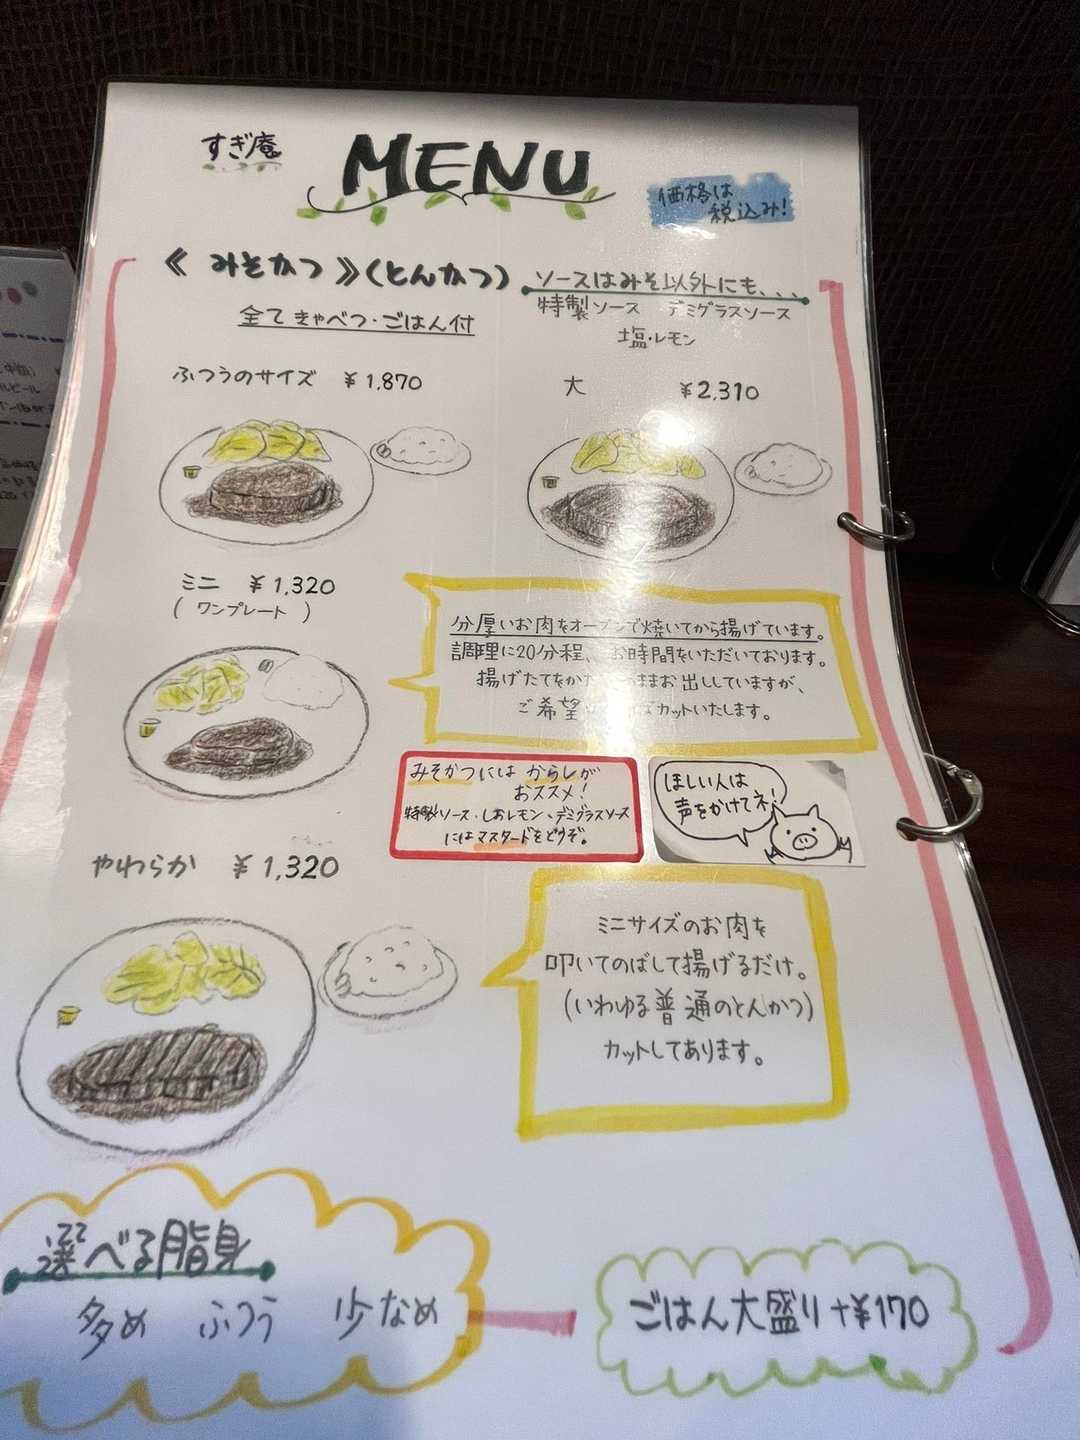 すぎ庵
MENU
価格は
税込み!
《 みそかつ 》(とんかつ)
ソースはみそ以外にも、、、
特製ソース デミグラスソース
塩・レモン
全て きゃべつ・ごはん付
ふつうのサイズ ¥1,870
大 ¥2,310
ミニ ¥1,320
( ワンプレート )
分厚いお肉をオーブンで焼いてから揚げています。
調理に20分程、お時間をいただいております。
揚げたてをか ままお出ししていますが、
ご希望 カットいたします。
みそかつには からしが
おススメ!
特製ソース・しおレモン、デミグラスソース
にはマスタードをどうぞ。
ほしい人は
声をかけてネ!
やわらか ¥1,320
ミニサイズのお肉を
叩いてのばして揚げるだけ。
(いわゆる普通のとんかつ)
カットしてあります。
選べる脂身
多め ふつう 少なめ
ごはん大盛り+¥170